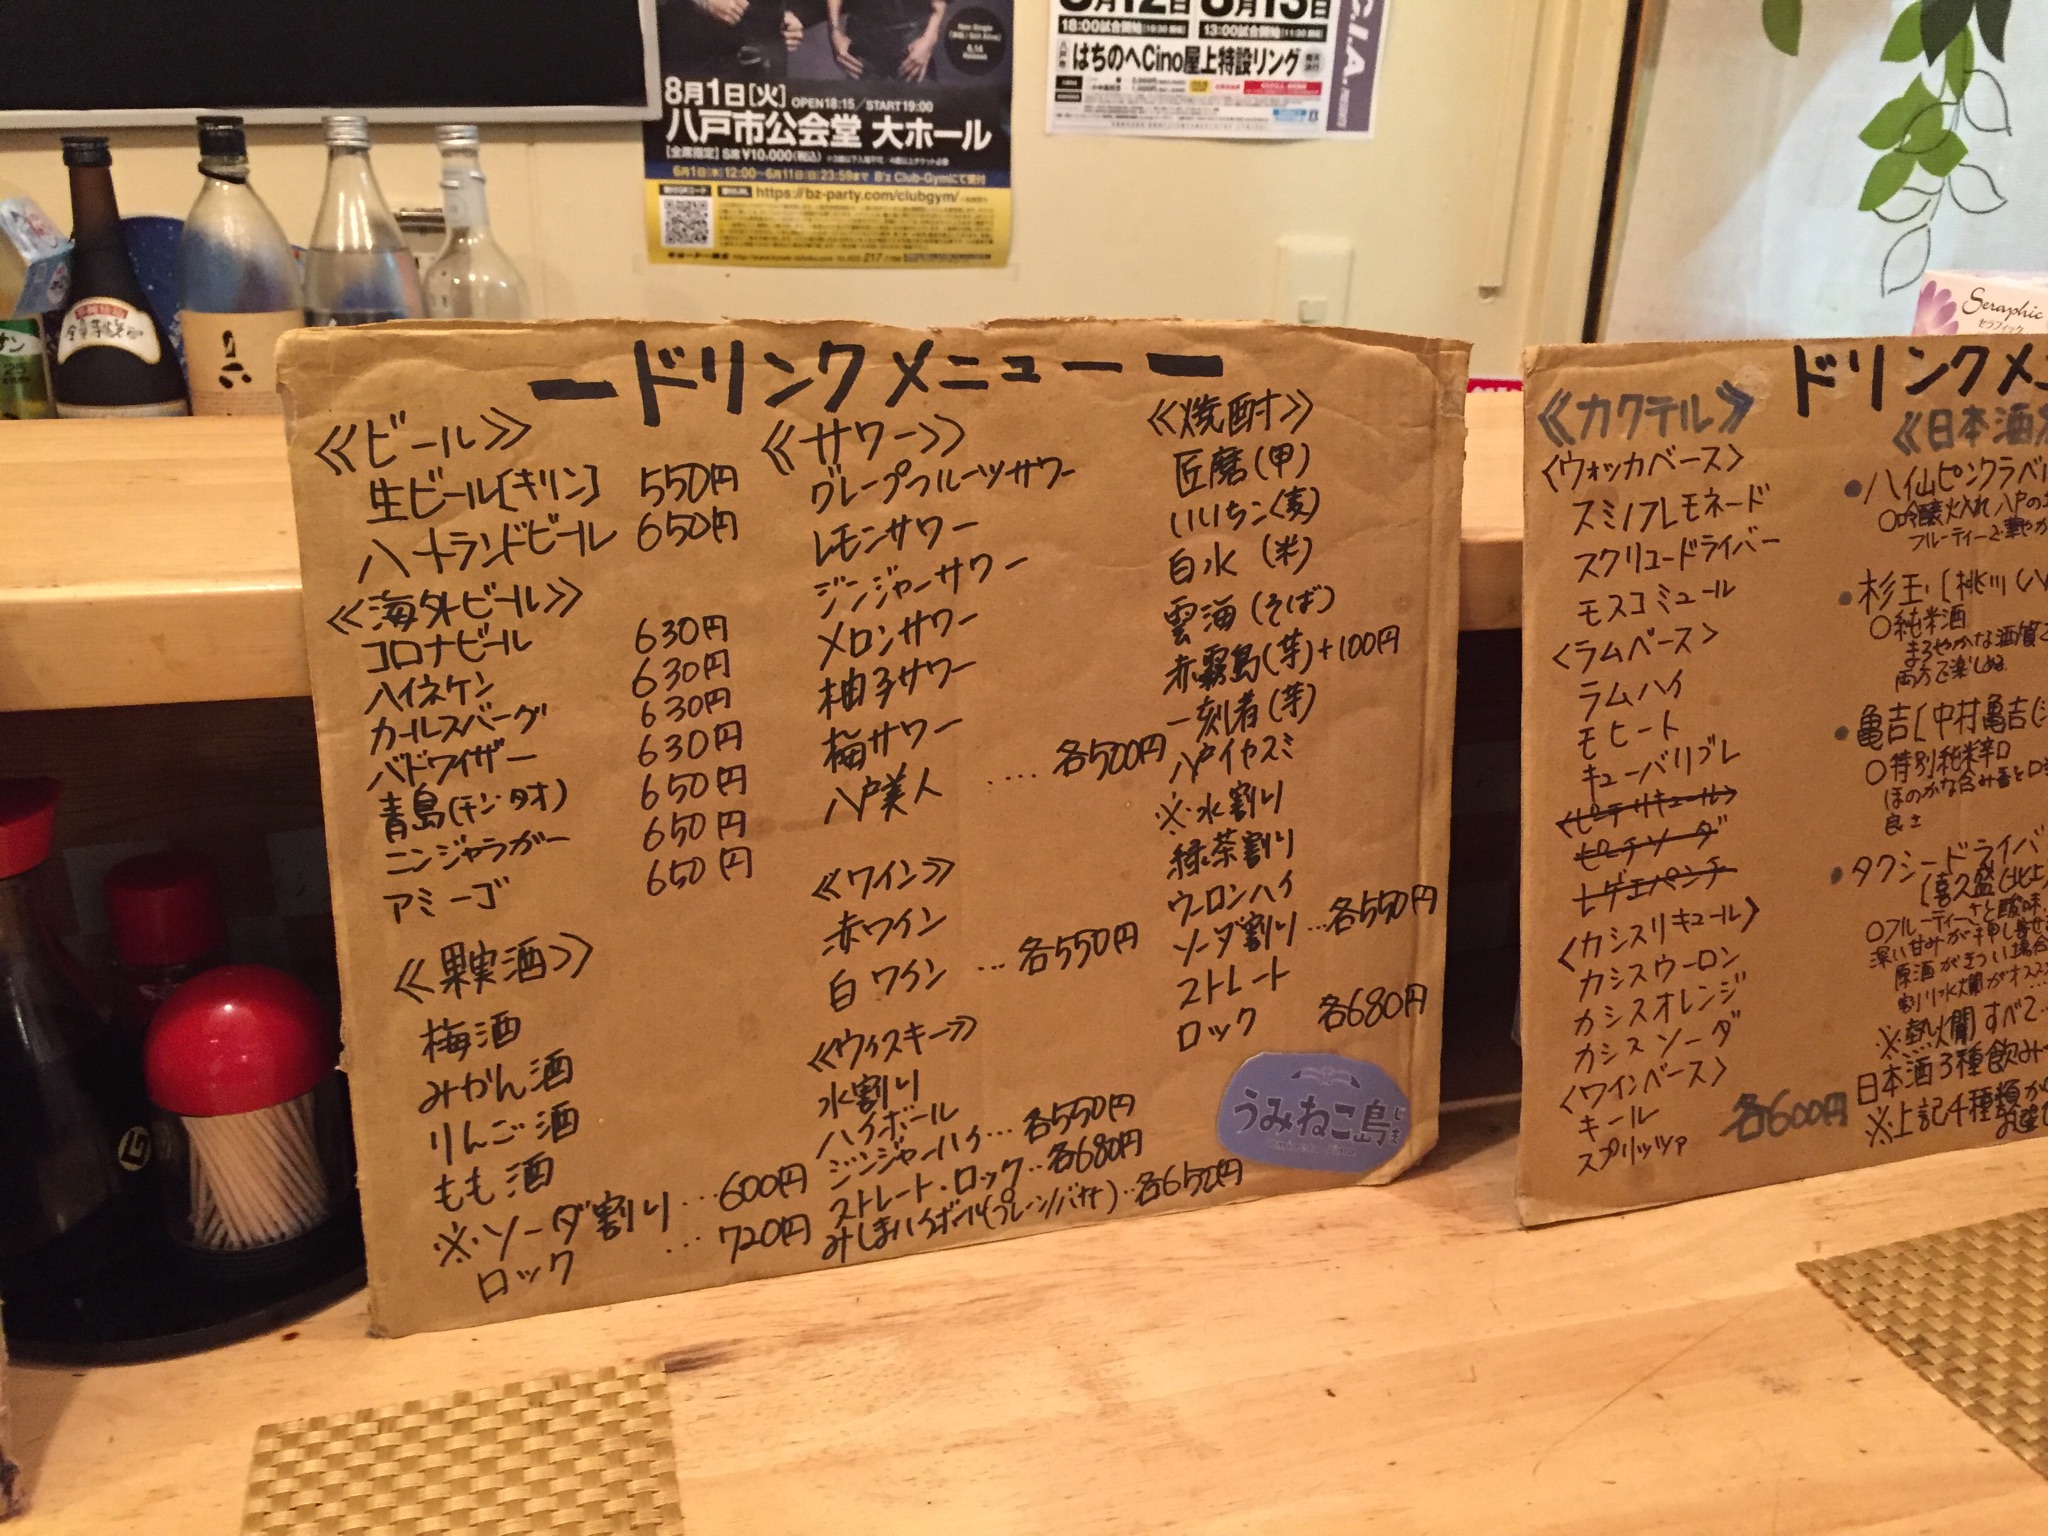 8月1日[火] OPEN18:15/START19:00
八戸市公会堂 大ホール
[全席指定] S席 ¥10,000(税込)
6月1日[木]12:00～6月11日[日]23:59まで B'z Club-Gymにて受付
https://bz-party.com/clubgym/
18:00試合開始
13:00試合開始
はちのへCino屋上特設リング
Seraphic
セラフィック
ードリンクメニューー
≪ビール≫
生ビール[キリン] 550円
ハートランドビール 650円
≪海外ビール≫
コロナビール 630円
ハイネケン 630円
カールスバーグ 630円
バドワイザー 630円
青島(チンタオ) 650円
ニンジャラガー 650円
アミーゴ 650円
≪果実酒≫
梅酒
みかん酒
りんご酒
もも酒
※ソーダ割り…600円
ロック …720円
≪サワー≫
グレープフルーツサワー
レモンサワー
ジンジャーサワー
メロンサワー
柚子サワー
梅サワー
八戸美人 ‥‥各500円
≪ワイン≫
赤ワイン
白ワイン …各550円
≪ウィスキー≫
水割り
ハイボール
ジンジャーハイ…各550円
ストレート・ロック‥各680円
みしまハイボール(プレーン/バナナ)‥各650円
≪焼酎≫
匠磨(甲)
いいちこ(麦)
白水(米)
雲海(そば)
赤霧島(芋)+100円
一刻者(芋)
八戸イヤスミ
※水割り
緑茶割り
ウーロンハイ
ソーダ割り…各550円
ストレート
ロック 各680円
うみねこ島
ドリンクメニ
≪カクテル≫
<ウォッカベース>
スミノフレモネード
スクリュードライバー
モスコミュール
<ラムベース>
ラムハイ
モヒート
キューバリブレ
<ピーチリキュール>
ピーチソーダ
レゲエパンチ
<カシスリキュール>
カシスウーロン
カシスオレンジ
カシスソーダ
<ワインベース>
キール
スプリッツァ 各600円
≪日本酒
●八仙ピンクラベル
○吟醸火入れ 八戸の
フルーティーで華やか
●杉玉[桃川(八
○純米酒
まろやかな酒質で
両方で楽しめ
●亀吉[中村亀吉(
○特別純米辛口
ほのかな含み香と口
良さ
●タクシードライバ
[喜久盛(北上)
○フルーティーさと酸味、
深い甘みが押し寄せ
原酒がきつい場合
割り水燗がオススメ
※熱燗すべて
日本酒3種飲み
※上記4種類か
お選び